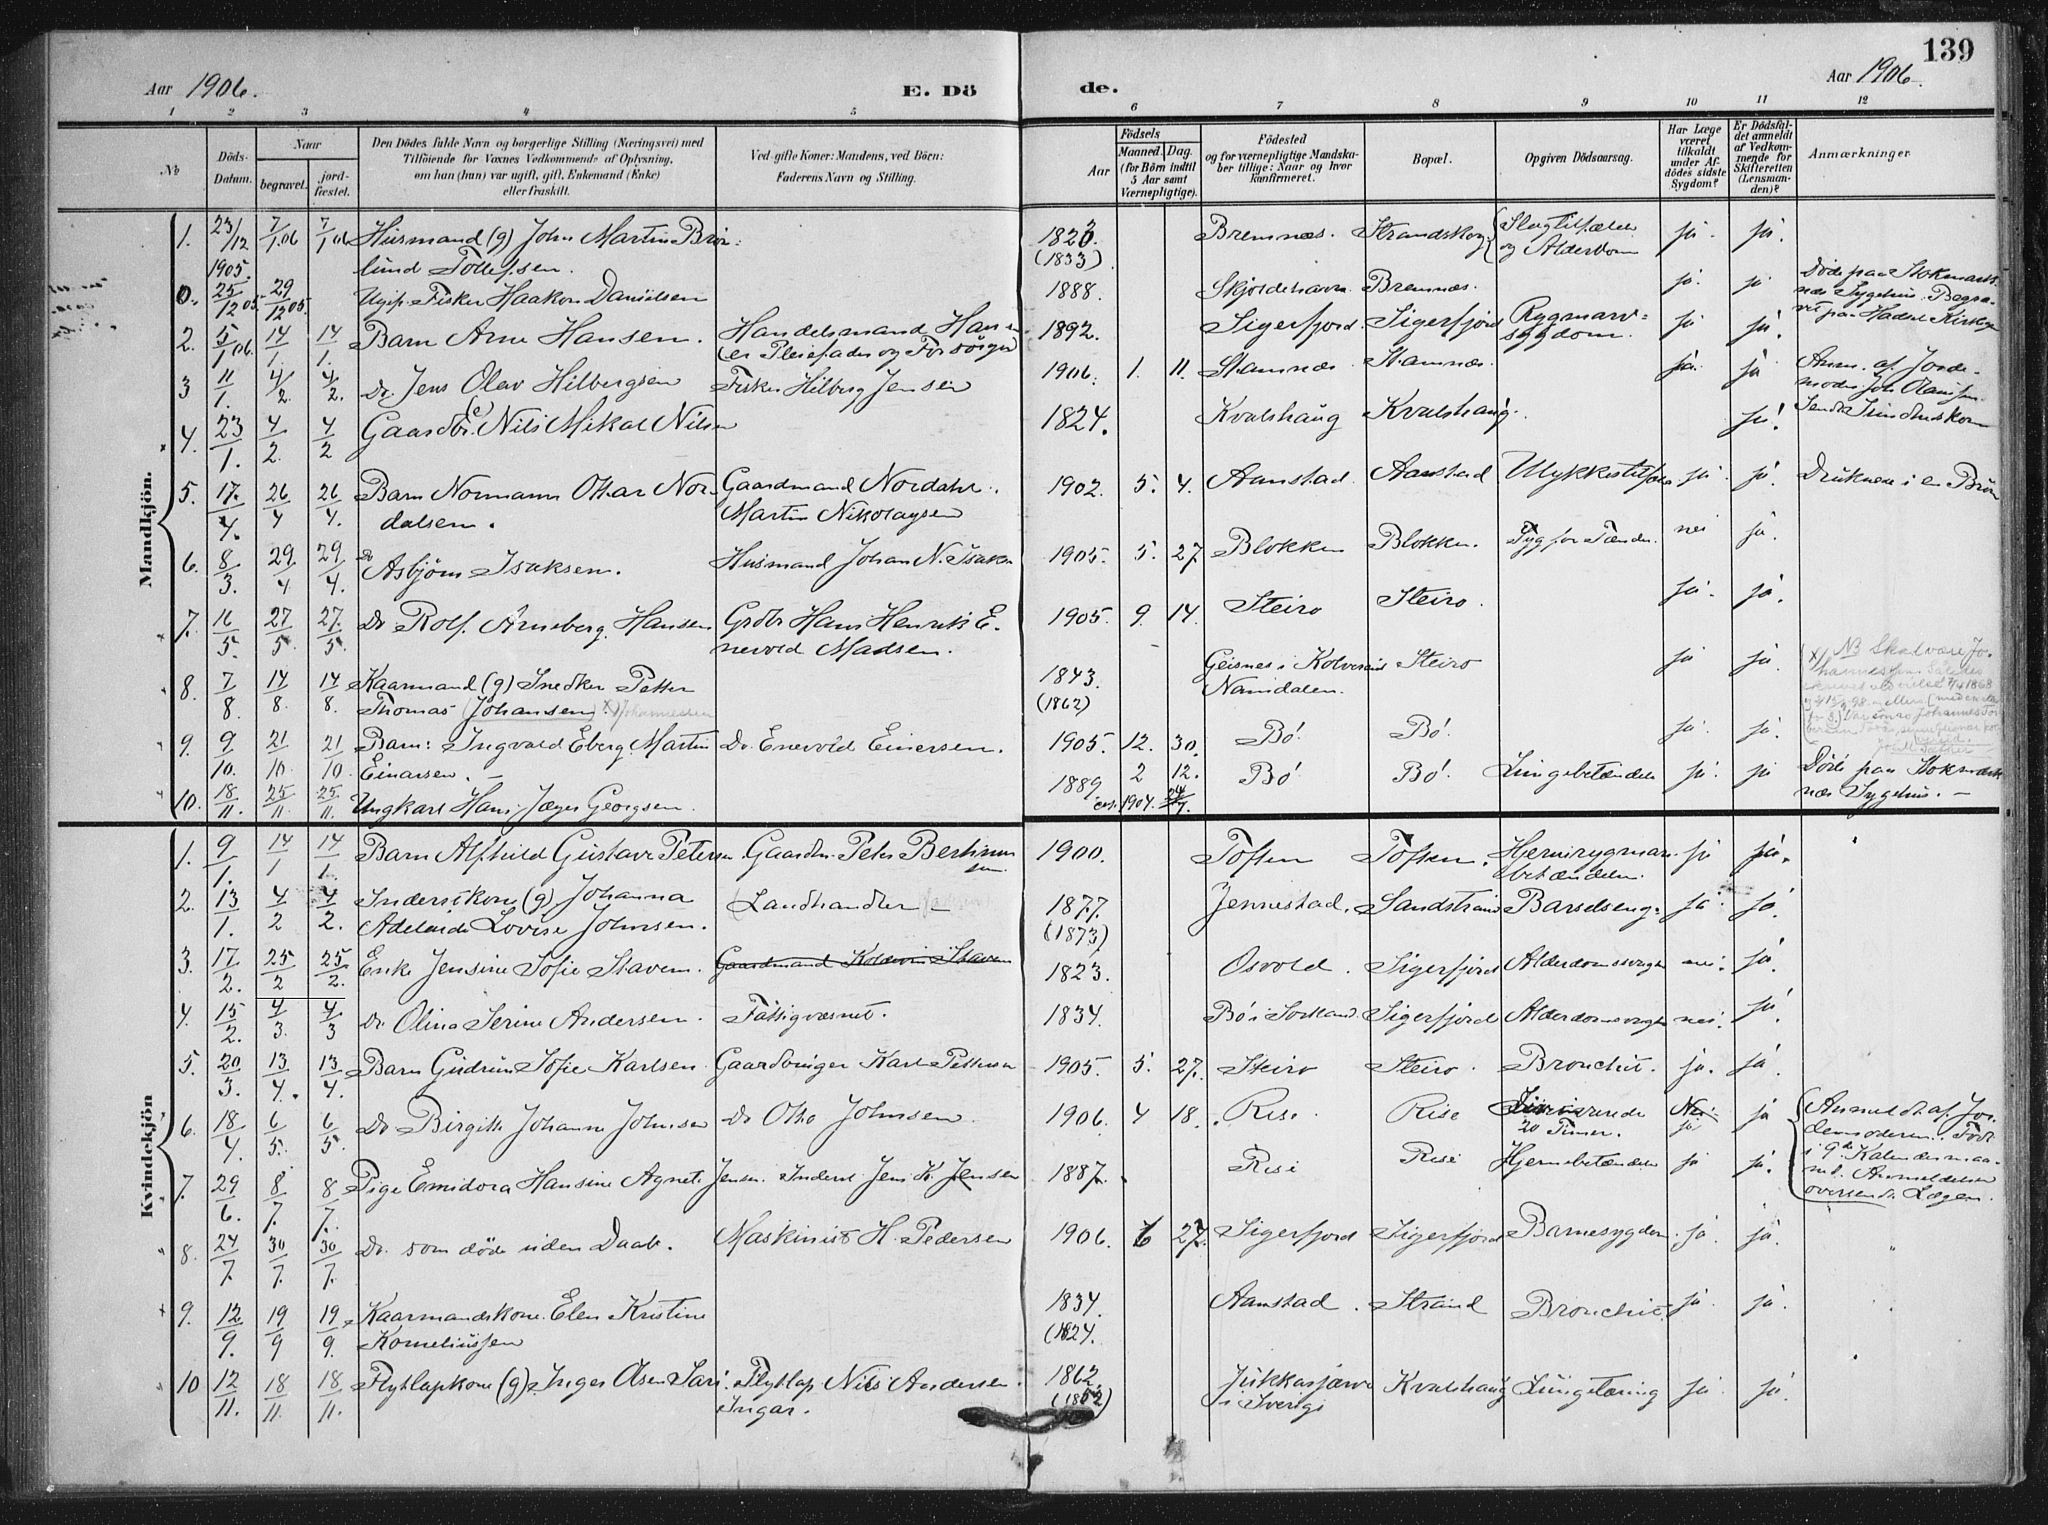 139
Aar 1906.
E. Dö
de.
Aar 1906.
1 2 3 4 5 6 7 8 9 10 11 12
No
Döds-Datum.
Naar
begravet.
jord-fæstet.
Den Dödes fulde Navn og borgerlige Stilling (Næringsvei) med
Tilföiende for Voxnes Vedkommende af Oplysning,
om han (hun) var ugift, gift, Enkemand (Enke)
eller fraskilt.
Ved gifte Koner: Mandens, ved Börn:
Faderens Navn og Stilling.
Födsels
Aar
Maaned. Dag.
(for Börn indtil
5 Aar samt
Værnepligtige).
Födested
og for værnepligtige Mandska-
ber tillige: Naar og hvor
konfirmeret.
Bopæl.
Opgiven Dödsaarsag.
Har Læge
været
tilkaldt
under Af-
dödes sidste
Sygdom?
Er Dödsfal-
det anmeldt
af Vedkom-
mende for
Skifteretten
(Lensman-
den)?
Anmærkninger
Mandkjön.
1. 23/12 1905. 7/1 06 7/1 06 Husmand (g) John Martin Brör: 1823. Bremnæs. Strandskog Slagtilfælde ja. ja.
lund Tollefsen. (1833) og Alderdom
0. 25/12 05 29/12 05. Ugip. Fisker Haakon Danielsen 1888. Skjoldehavn Bremnæs. ja. ja Döde paa Stokmarks-
næs Sygehus. Begra-
vet paa Hadsel Kirkeg.
2. 5/1 06. 14/1. 14/1. Barn Arne Hansen. Handelsmand Hansen 1892. Sigerfjord. Sigerfjord Rygmarv- ja ja.
(er Pleiefader og Forsörger) sygdom.
3 11/1. 4/2. 4/2. Do Jens Olav Hilbergsen Fisker Hilberg Jensen 1906. 1. 11. Stamnæs Stamnæs. ja. ja Anm. af Jorde-
moder
4. 23/1. 4/2. 4/2 Gaardbr. Nils Mikal Nilsen 1824. Kvalshaug Kvalshaug. ja!
5. 17/4. 26/4 26/4. Barn Normann Ottar Nor- Gaardmand Nordahl 1902. 5. 4. Aanstad Aanstad Ulykkestilfælde ja. ja. Druknede i en Brön
dalsen. Martin Nikolaysen
6. 8/3. 29/4 29/4. Do Asbjörn Isaksen. Husmand Johan N. Isaksen 1905. 5. 27. Blokken Blokken. Tyg for Tænder nei ja.
7. 16/5. 27/5. 27/5. Do Rolf Arneberg Hansen Grdbr Hans Henrik E- 1905. 9. 14. Steiro Steiro. ja. ja.
nevold Madsen.
8. 7/8. 14/8. 14/8. Kaarmand (g) Snedker Petter 1843. Geisnes i Kolvereid Steiro ja ja.
Thomas (Johansen) x) Johannessen (1862) Namdalen.
x) NB Skal være Jo-
hannessen.
9. 9/10. 21/10. 21/10 Barn: Ingvald Eberg Martin Do Enevold Einersen. 1905. 12. 30. Bö. Bö. ja. ja.
Einarsen.
10. 18/11. 25/11. 25/11. Ungkarl Hans Jæger Georgsen. 1889. 2 12. Bö Bö. Lungebetændelse ja. ja Döde paa Stokmarks-
1904. 24/7. næs Sygehus.
Kvindekjön
1. 9/1. 14/1 14/1. Barn Alfhild Gustava Petersen Gaardbr. Peter Bertinius- 1900. Toften Toften. Hjernerygmarvs- ja ja.
sen. betændelse.
2. 13/1. 4/2 4/2. Inderstkone (g) Johanna Landhandler 1877. Jennestad. Sandstrand Barselseng. ja. ja.
Adelaide Lovise Johnsen. (1873)
3. 17/2. 25/2 25/2. Enke Jensine Sofie Staven. Gaardmand Staven 1823. Osvold. Sigerfjord Alderdomssvaghed nei. ja.
4. 15/2. 4/3. 4/3 Do Olina Serine Andersen. Fattigvæsenet. 1834. Bö i Sortland. Sigerfjord Alderdomssvaghed nei. ja.
5. 20/3. 13/4. 13/4. Barn Gudrun Sofie Karlsen Gaardbruger Karl Pettersen 1905. 5. 27. Steiro Steiro. Bronchit. ja. ja.
6. 18/4. 6/5. 6/5. Do Birgitte Johanne Johnsen Do Otto Johnsen 1906. 4 18. Rise. Rise 20 Timer. Nei. ja ja Anmeldt af Jor-
demoderen. Födt
i 9de Kalendermaa-
ned. Anmeldelsen
oversendt Lægen.
7. 29/6. 8/7. 8/7. Pige Emidora Hansine Agnete Jensen. Inderst Jens K. Jensen 1887. Rise Rise Hjernebetændelse ja ja.
8. 24/7. 30/7. 30/7. Do som döde uden Daab. Maskinist H. Pedersen 1906. 6 27. Sigerfjord Sigerfjord Barnesygdom. ja. ja.
9. 12/9. 19/9 19/9. Kaarmandskone Elen Kristine 1834. Aanstad. Strand Bronchit. ja. ja.
Korneliussen (1824.
10 12/11. 18/11. 18/11. Flytlapkone (g). Inger Olsen Sari. Flytlap Nils Andersen 1862. Jukkasjærvi Kvalshaug Lungetæring ja ja.
Ingar. (1852) i Sverige